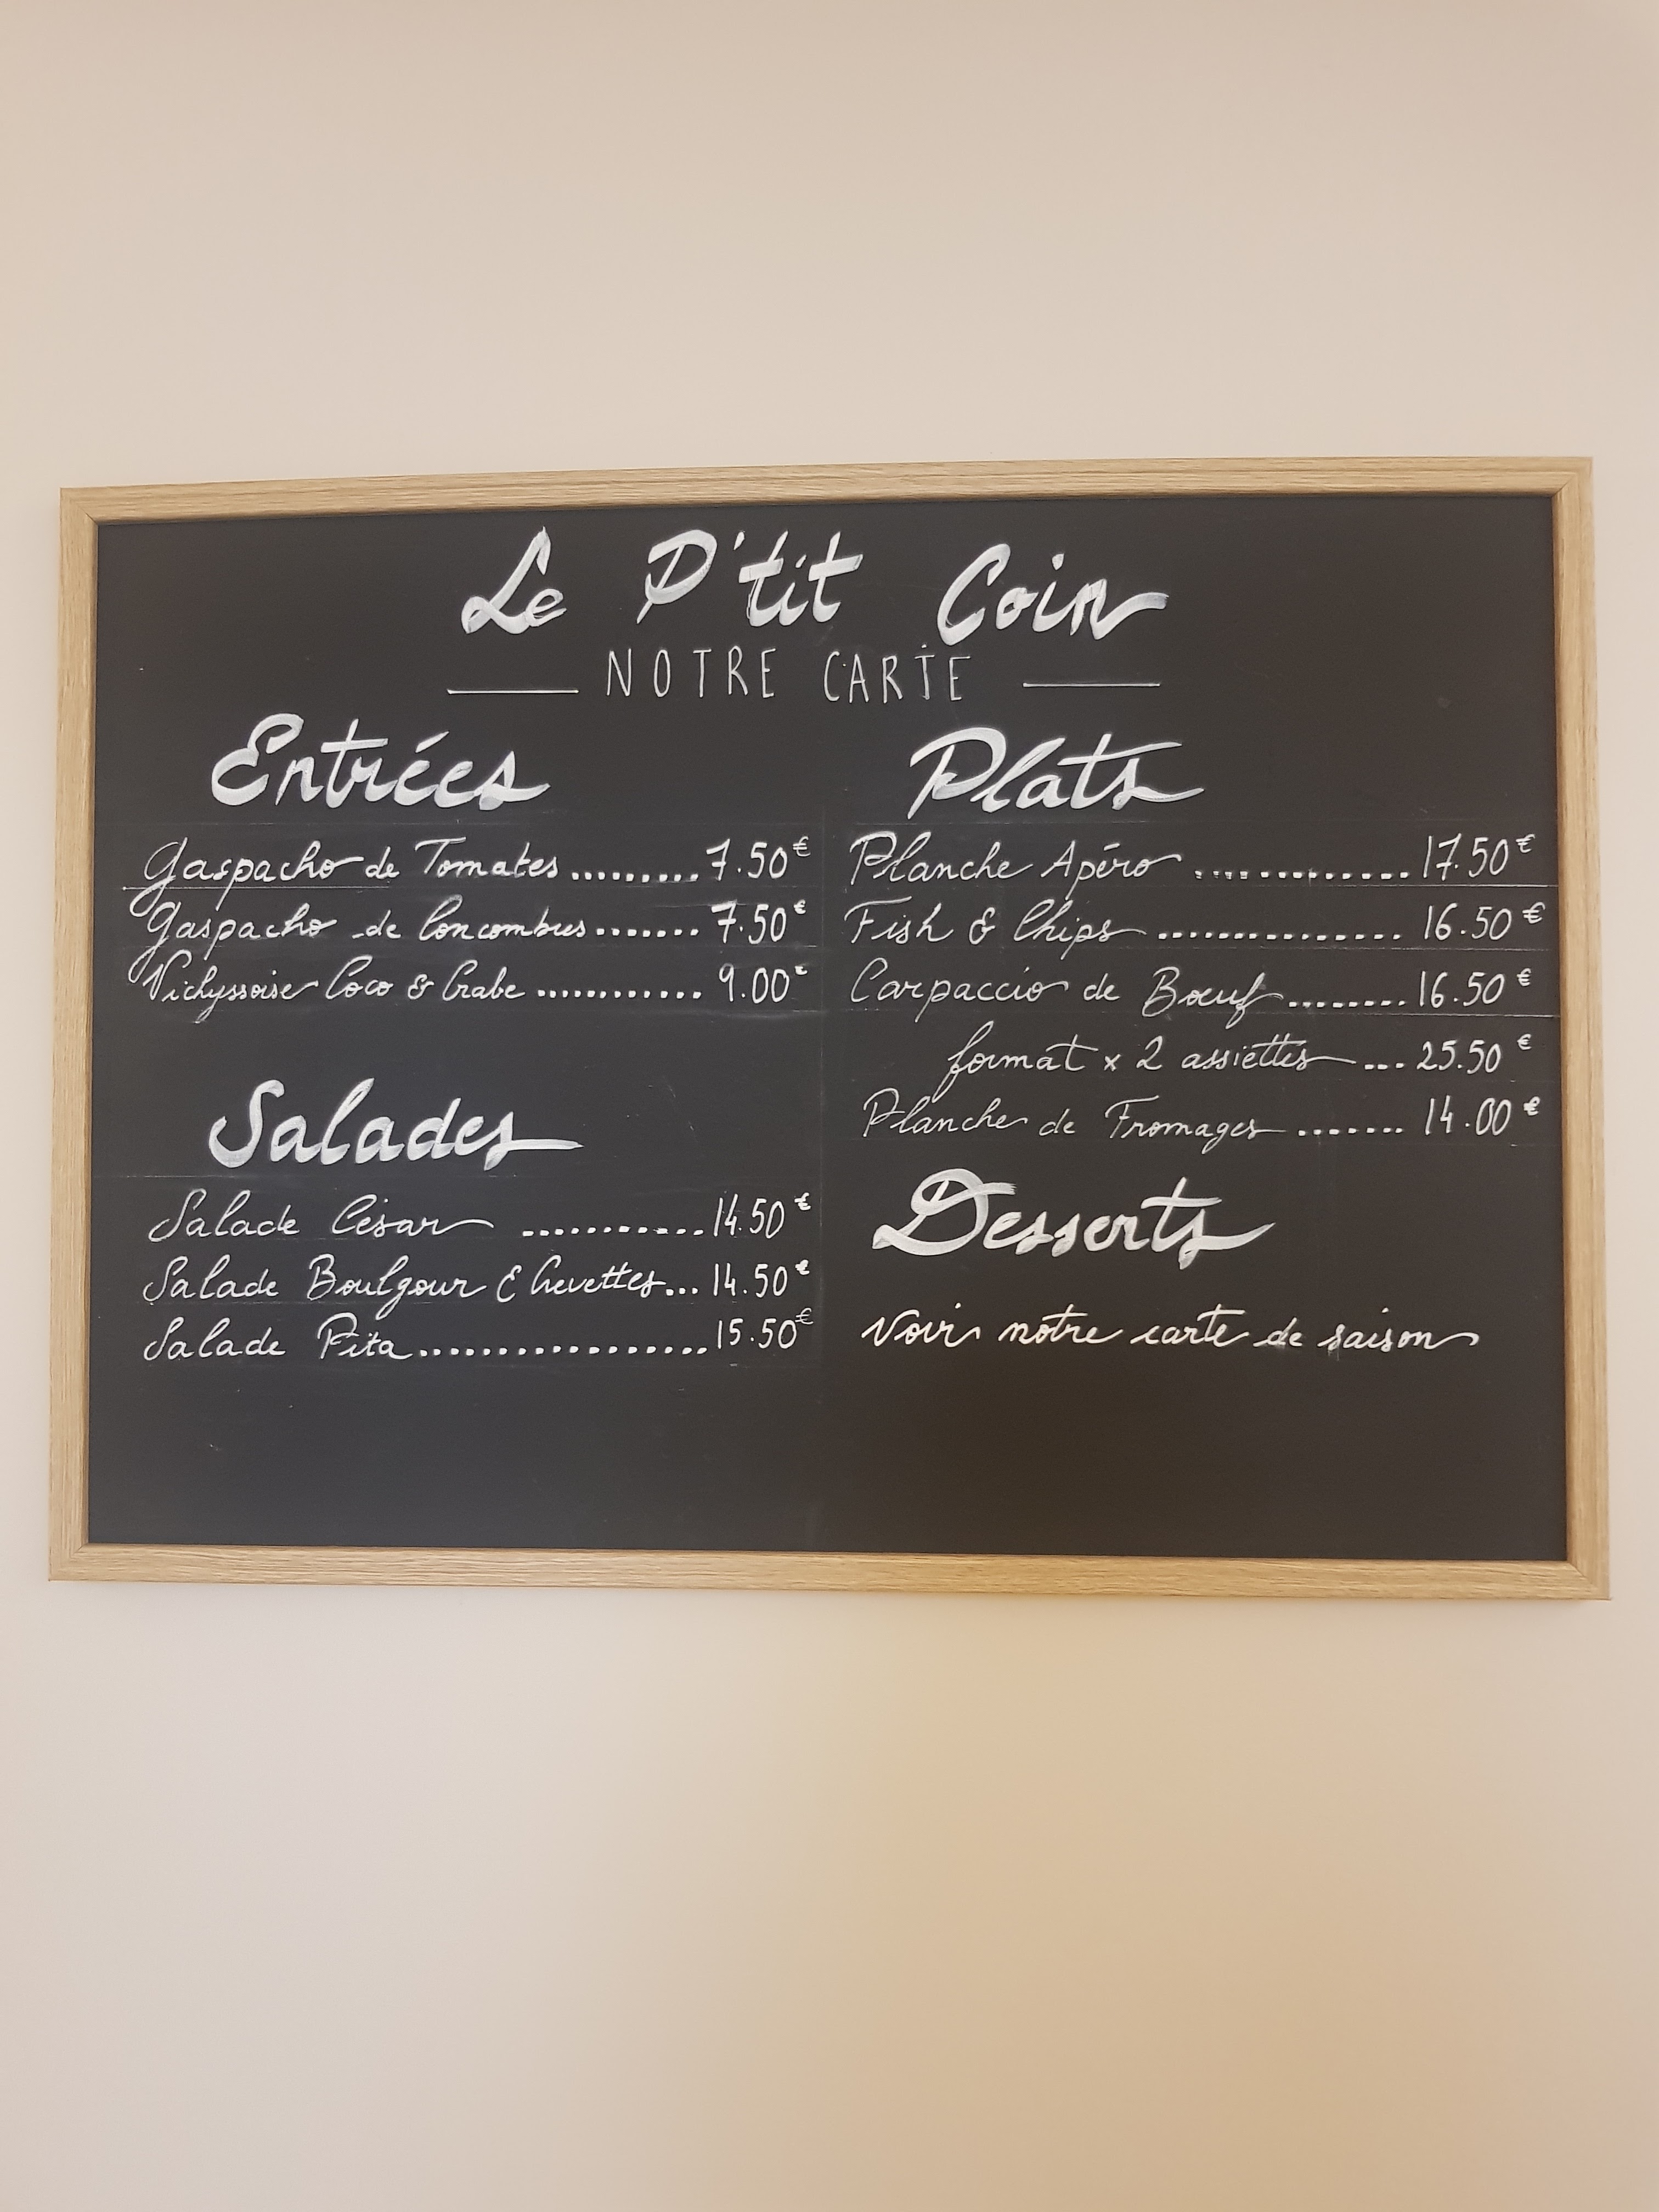 Le P'tit Coin
NOTRE CARTE
Entrées
Gaspacho de Tomates ......... 7.50€
Gaspacho de Concombres ....... 7.50€
Vichyssoise Coco & Crabe ............ 9.00€
Salades
Salade César ............ 14.50€
Salade Boulgour & Crevettes... 14.50€
Salade Pita .................. 15.50€
Plats
Planche Apéro ............. 17.50€
Fish & Chips ................ 16.50€
Carpaccio de Bœuf ........ 16.50€
format x 2 assiettes ... 25.50€
Planche de Fromages ....... 14.00€
Desserts
Voir notre carte de saison